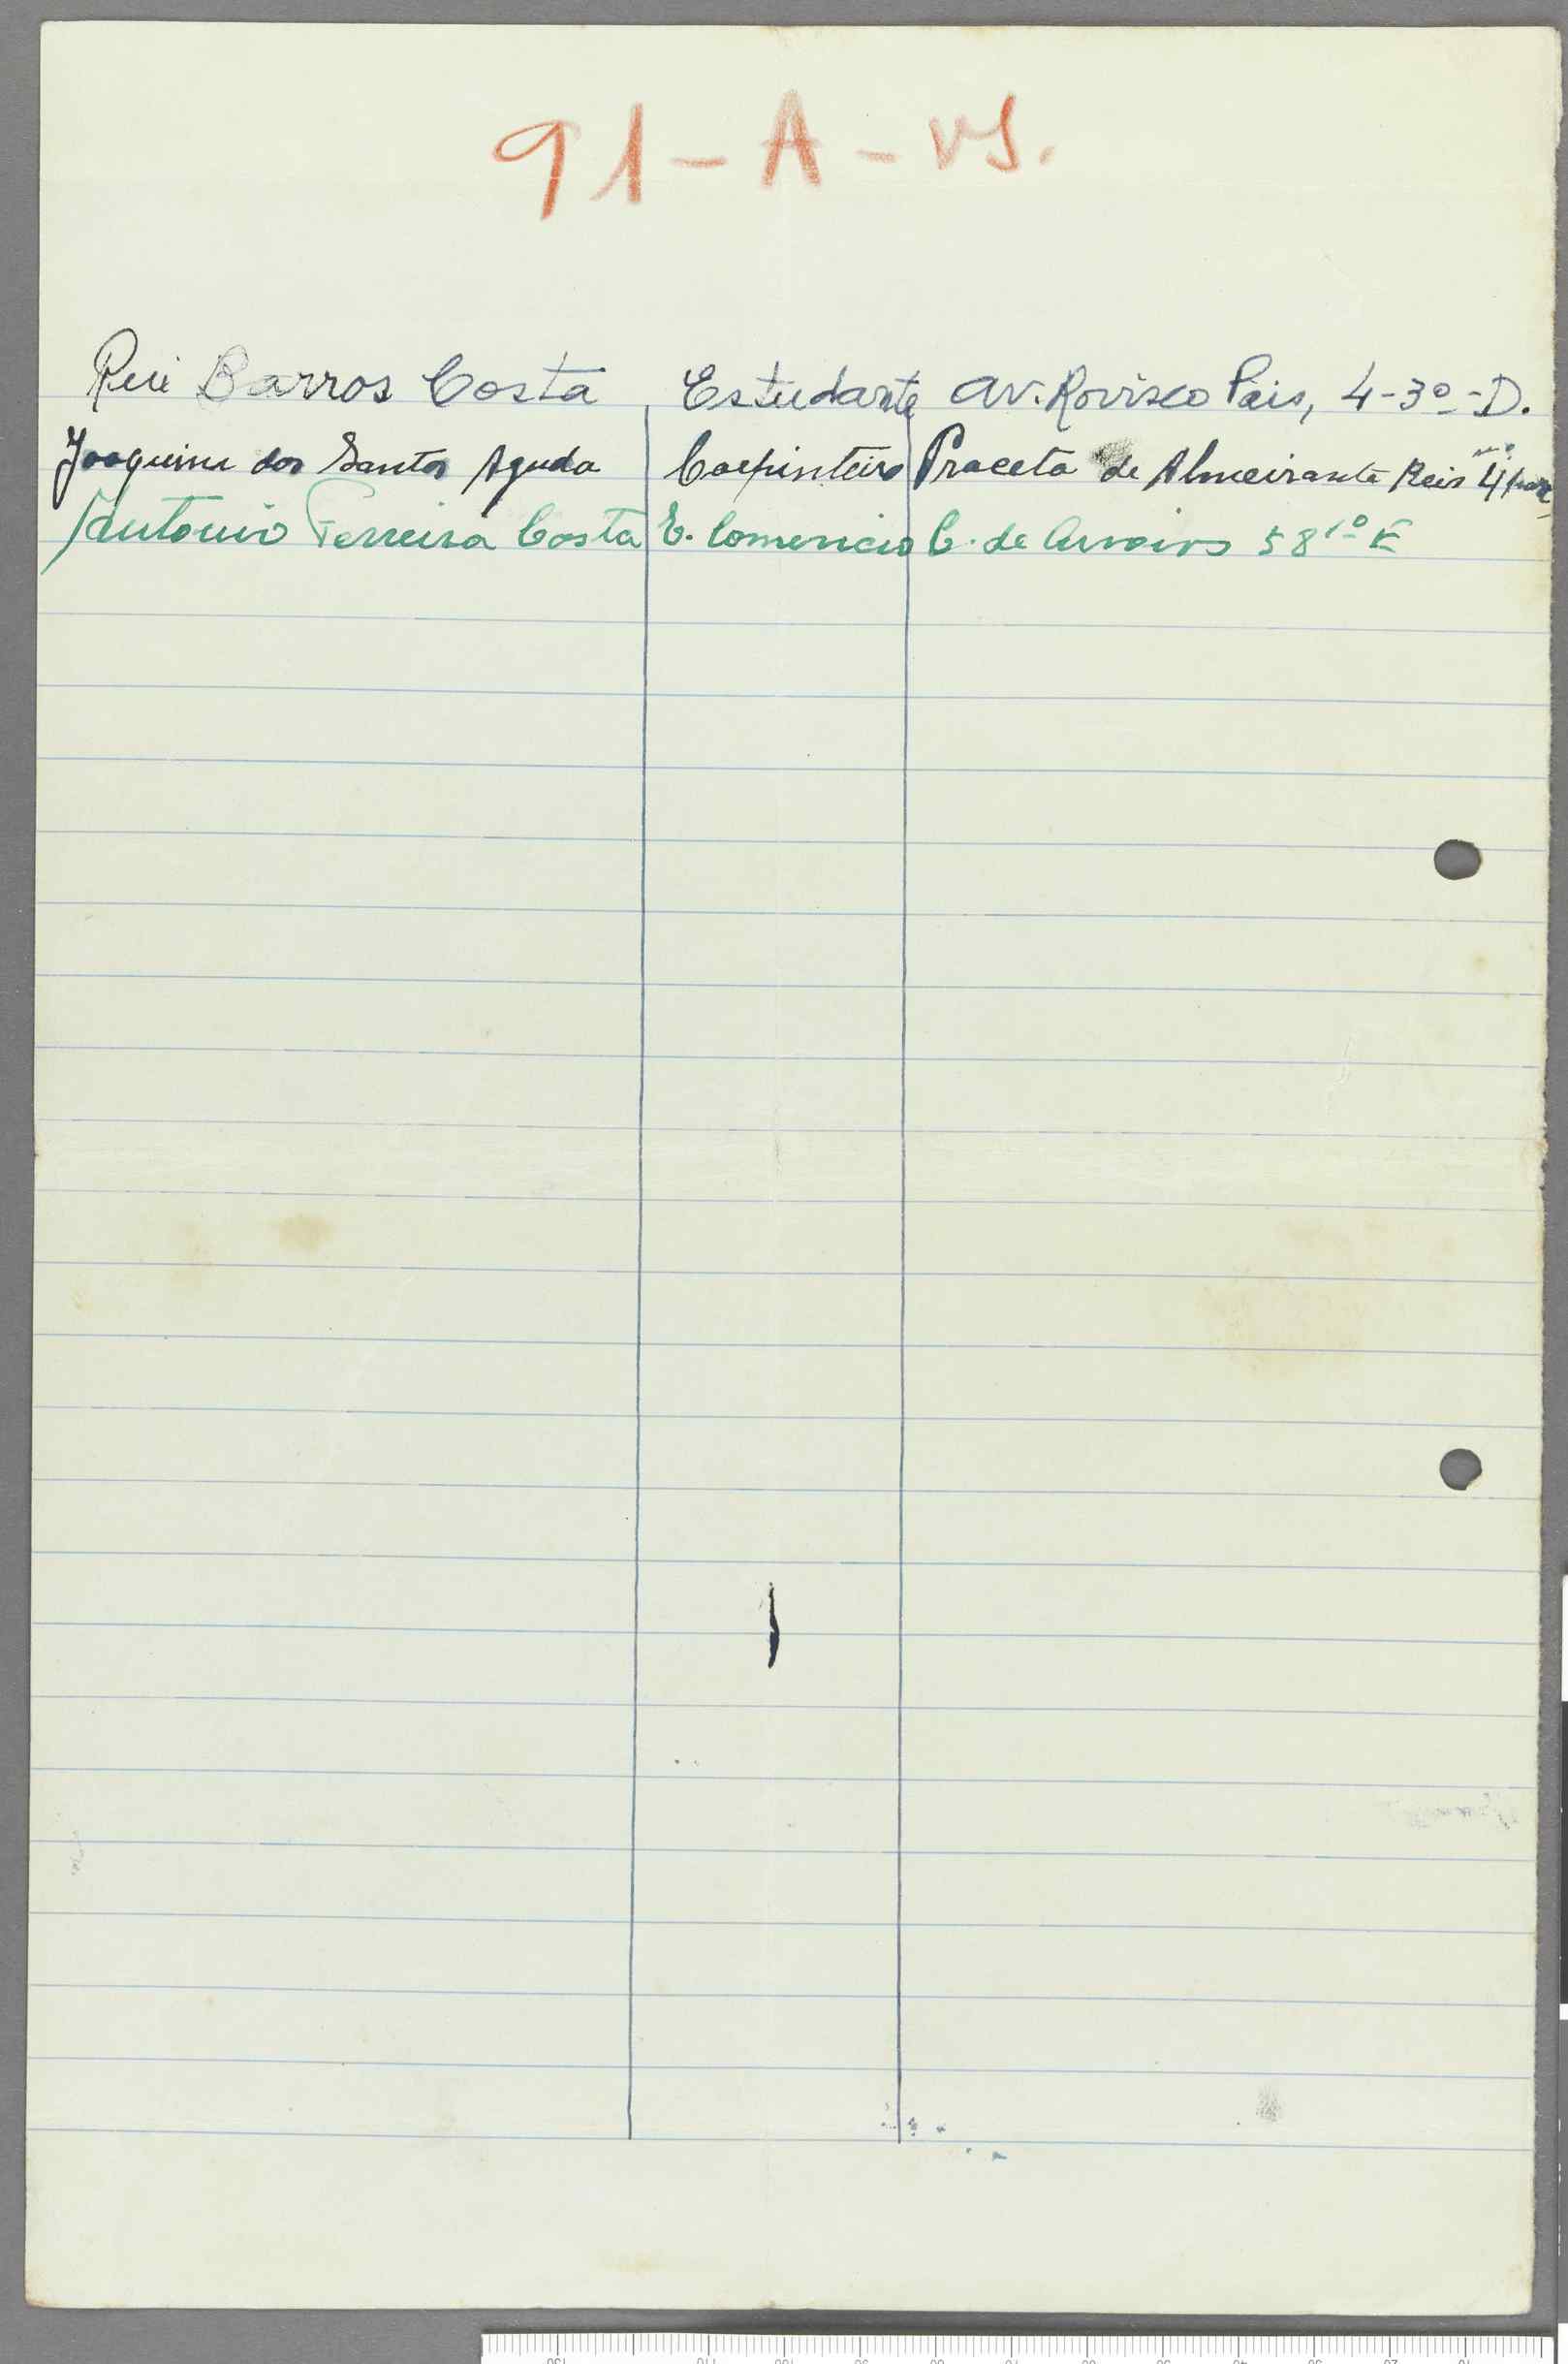 91-A-vs.
Rui Barros Costa Estudante Av. Rovisco Pais, 4-3º-D.
Joaquim dos Santos Aguda Carpinteiro Praceta de Almeirante Reis nº 4
Antonio Ferreira Costa E. Comericio C. de Arroios 58 1º E